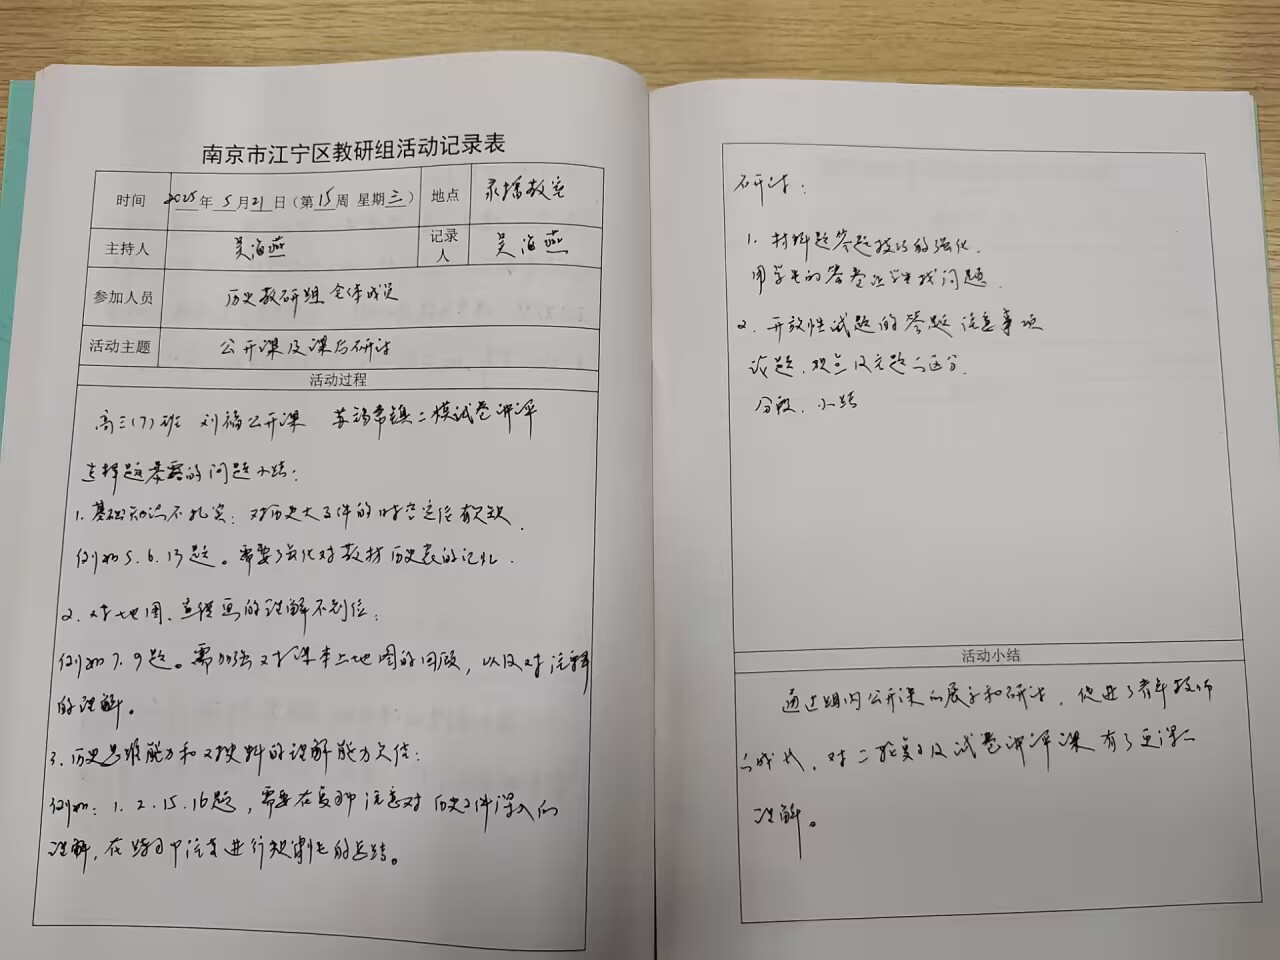 南京市江宁区教研组活动记录表
时间 2025年5月21日(第15周 星期三) 地点 录播教室
主持人 吴海燕 记录人 吴海燕
参加人员 历史教研组全体成员
活动主题 公开课及课后研讨
活动过程
高三(7)班 刘福公开课 苏锡常镇二模试卷讲评
选择题暴露的问题小结:
1. 基础知识不扎实:对历史大事件的时空定位有欠缺.
例如5.6.13题。需要强化对教材历史表的记忆.
2. 对地图、宣传画的理解不到位:
例如7.9题。需加强对课本上地图的回顾,以及对注释
的理解。
3. 历史思维能力和对史料的理解能力欠佳:
例如:1.2.15.16题,需要在复习中注意对历史事件深入的
理解,在练习中注意进行规律性的总结。
研讨:
1. 材料题答题技巧的强化.
用学生的答卷让学生找问题.
2. 开放性试题的答题注意事项
论题、观点及元题的区分.
分段、小结
活动小结
通过组内公开课的展示和研讨,促进了青年教师
的成长,对二轮复习及试卷讲评课有了更深的
理解。